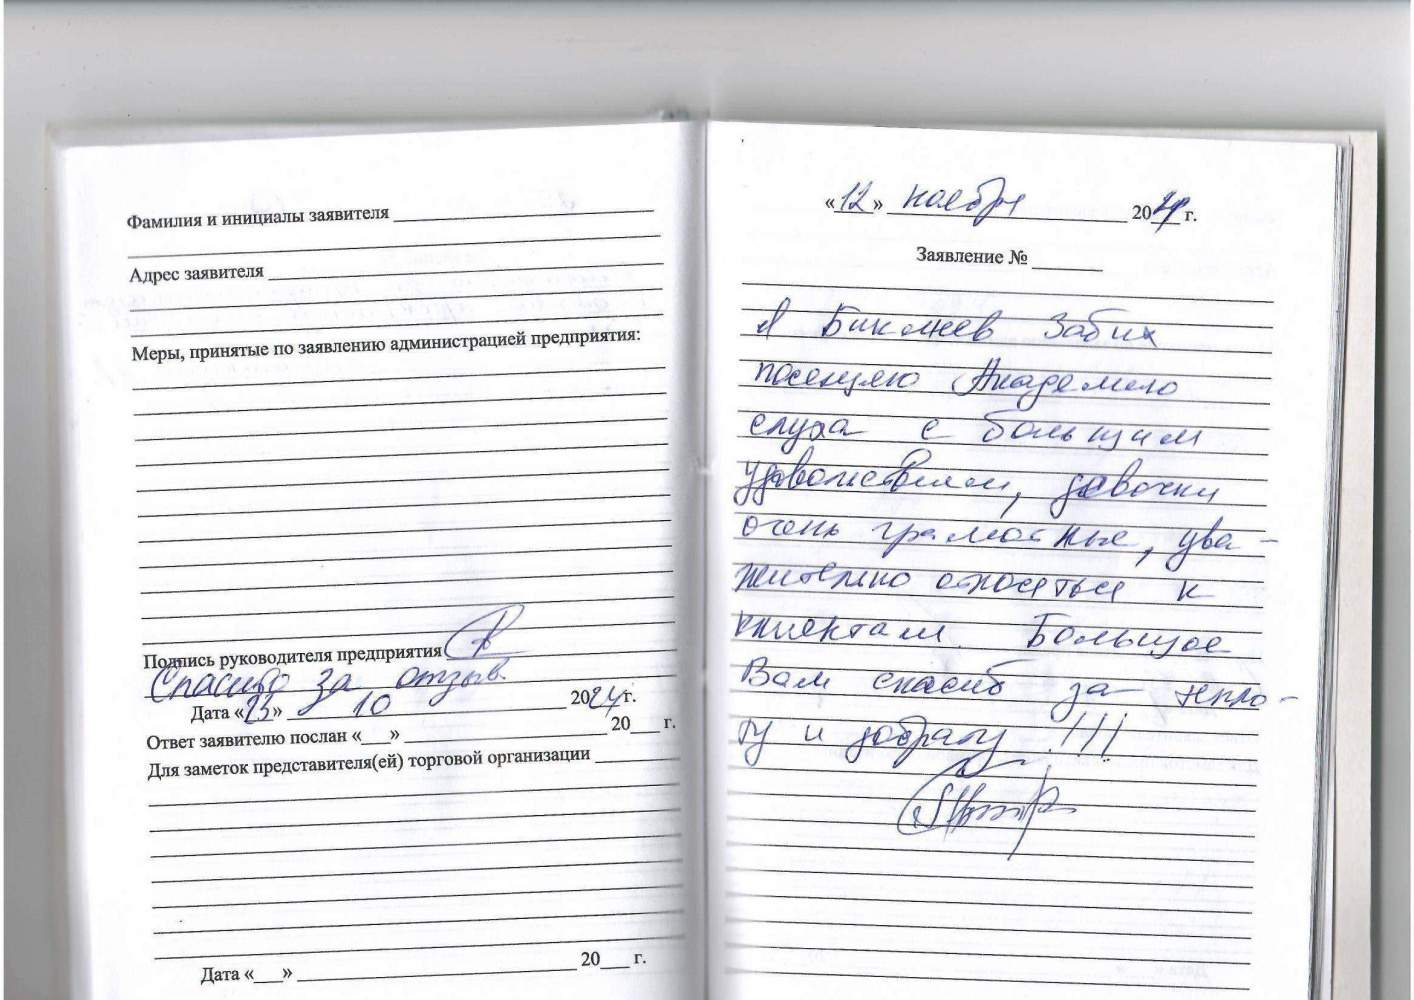 Фамилия и инициалы заявителя
Адрес заявителя
Меры, принятые по заявлению администрацией предприятия:
Подпись руководителя предприятия
Спасибо за отзыв
Дата «23» 10 2024 г.
Ответ заявителю послан «___» 20___ г.
Для заметок представителя(ей) торговой организации
Дата «___» 20___ г.
«12» ноября 20 г.
Заявление №
Я
посещаю Академию
слуха с большим
удовольствием, девочки
очень грамотные, ува-
жительно относяться к
клиентам. Большое
Вам спасиб за тепло-
ту и доброту !!!